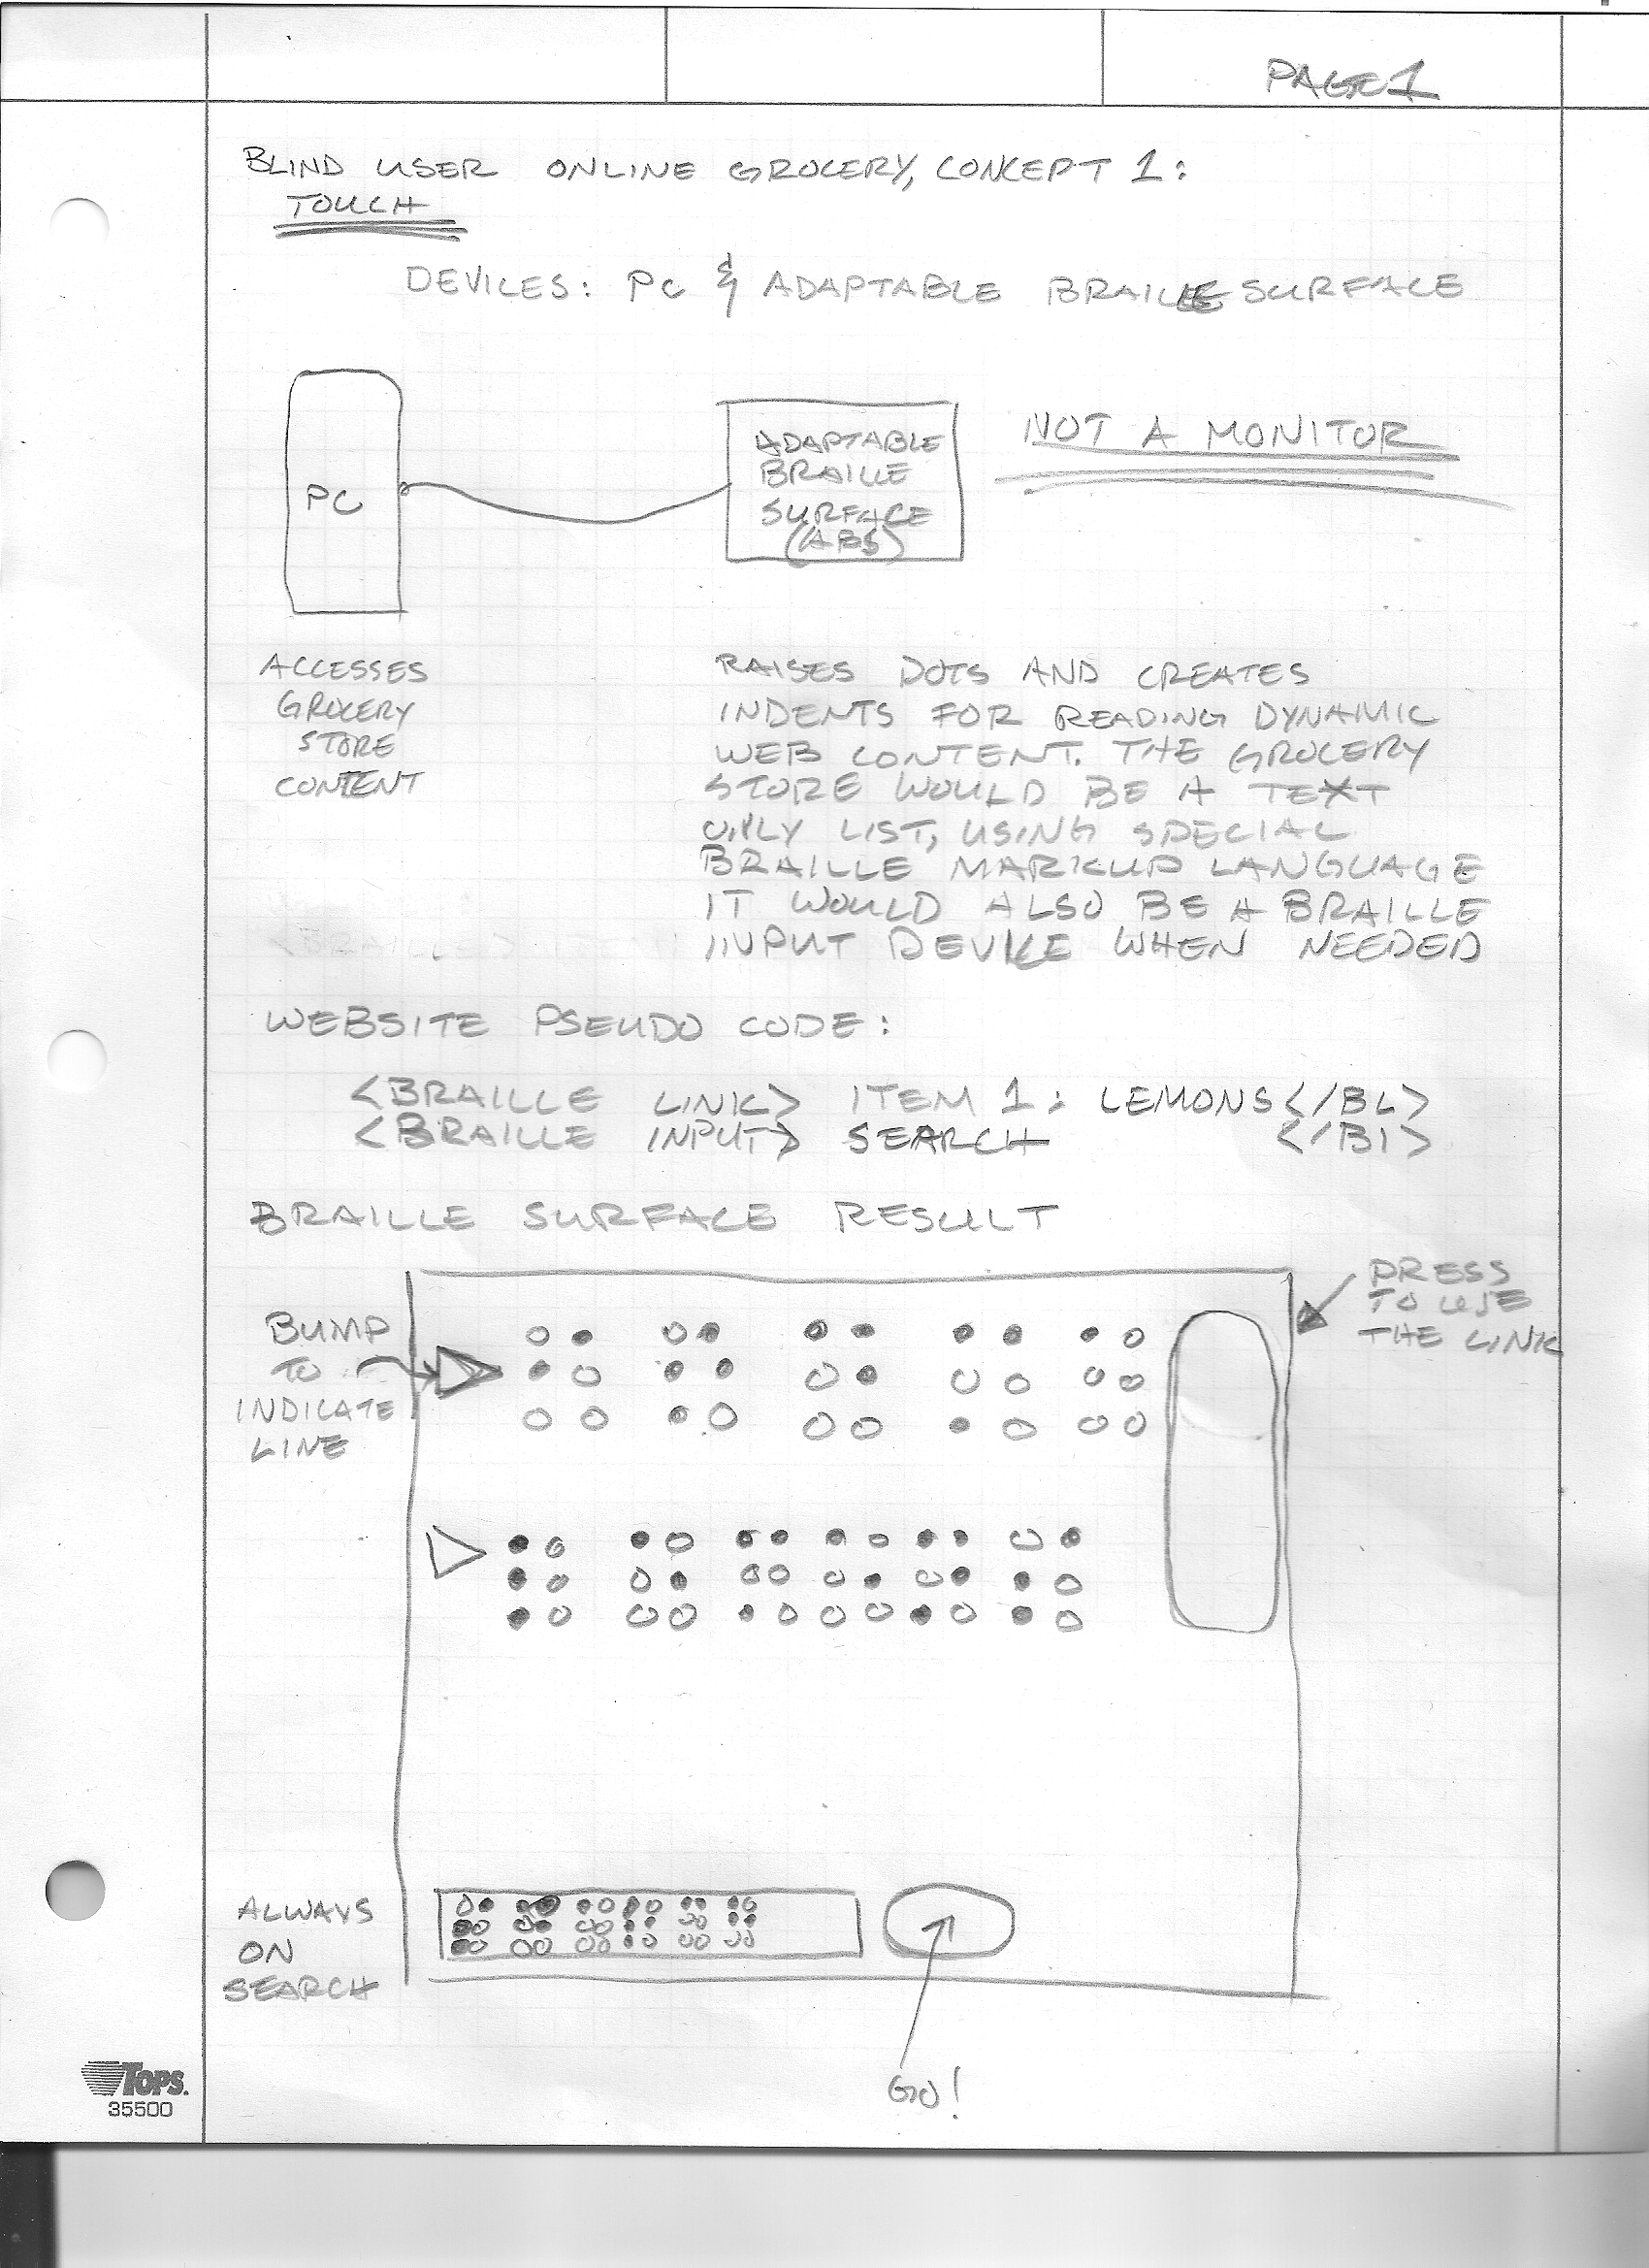 PAGE 1
BLIND USER ONLINE GROCERY, CONCEPT 1:
TOUCH
DEVICES: PC & ADAPTABLE BRAILLE SURFACE
PC
ADAPTABLE
BRAILLE
SURFACE
(ABS)
NOT A MONITOR
ACCESSES
GROCERY
STORE
CONTENT
RAISES DOTS AND CREATES
INDENTS FOR READING DYNAMIC
WEB CONTENT. THE GROCERY
STORE WOULD BE A TEXT
ONLY LIST, USING SPECIAL
BRAILLE MARKUP LANGUAGE
IT WOULD ALSO BE A BRAILLE
INPUT DEVICE WHEN NEEDED
WEBSITE PSEUDO CODE:
<BRAILLE LINK> ITEM 1: LEMONS </BL>
<BRAILLE INPUT> SEARCH </BI>
BRAILLE SURFACE RESULT
BUMP
TO
INDICATE
LINE
PRESS
TO USE
THE LINK
ALWAYS
ON
SEARCH
GO!
TOPS.
35500